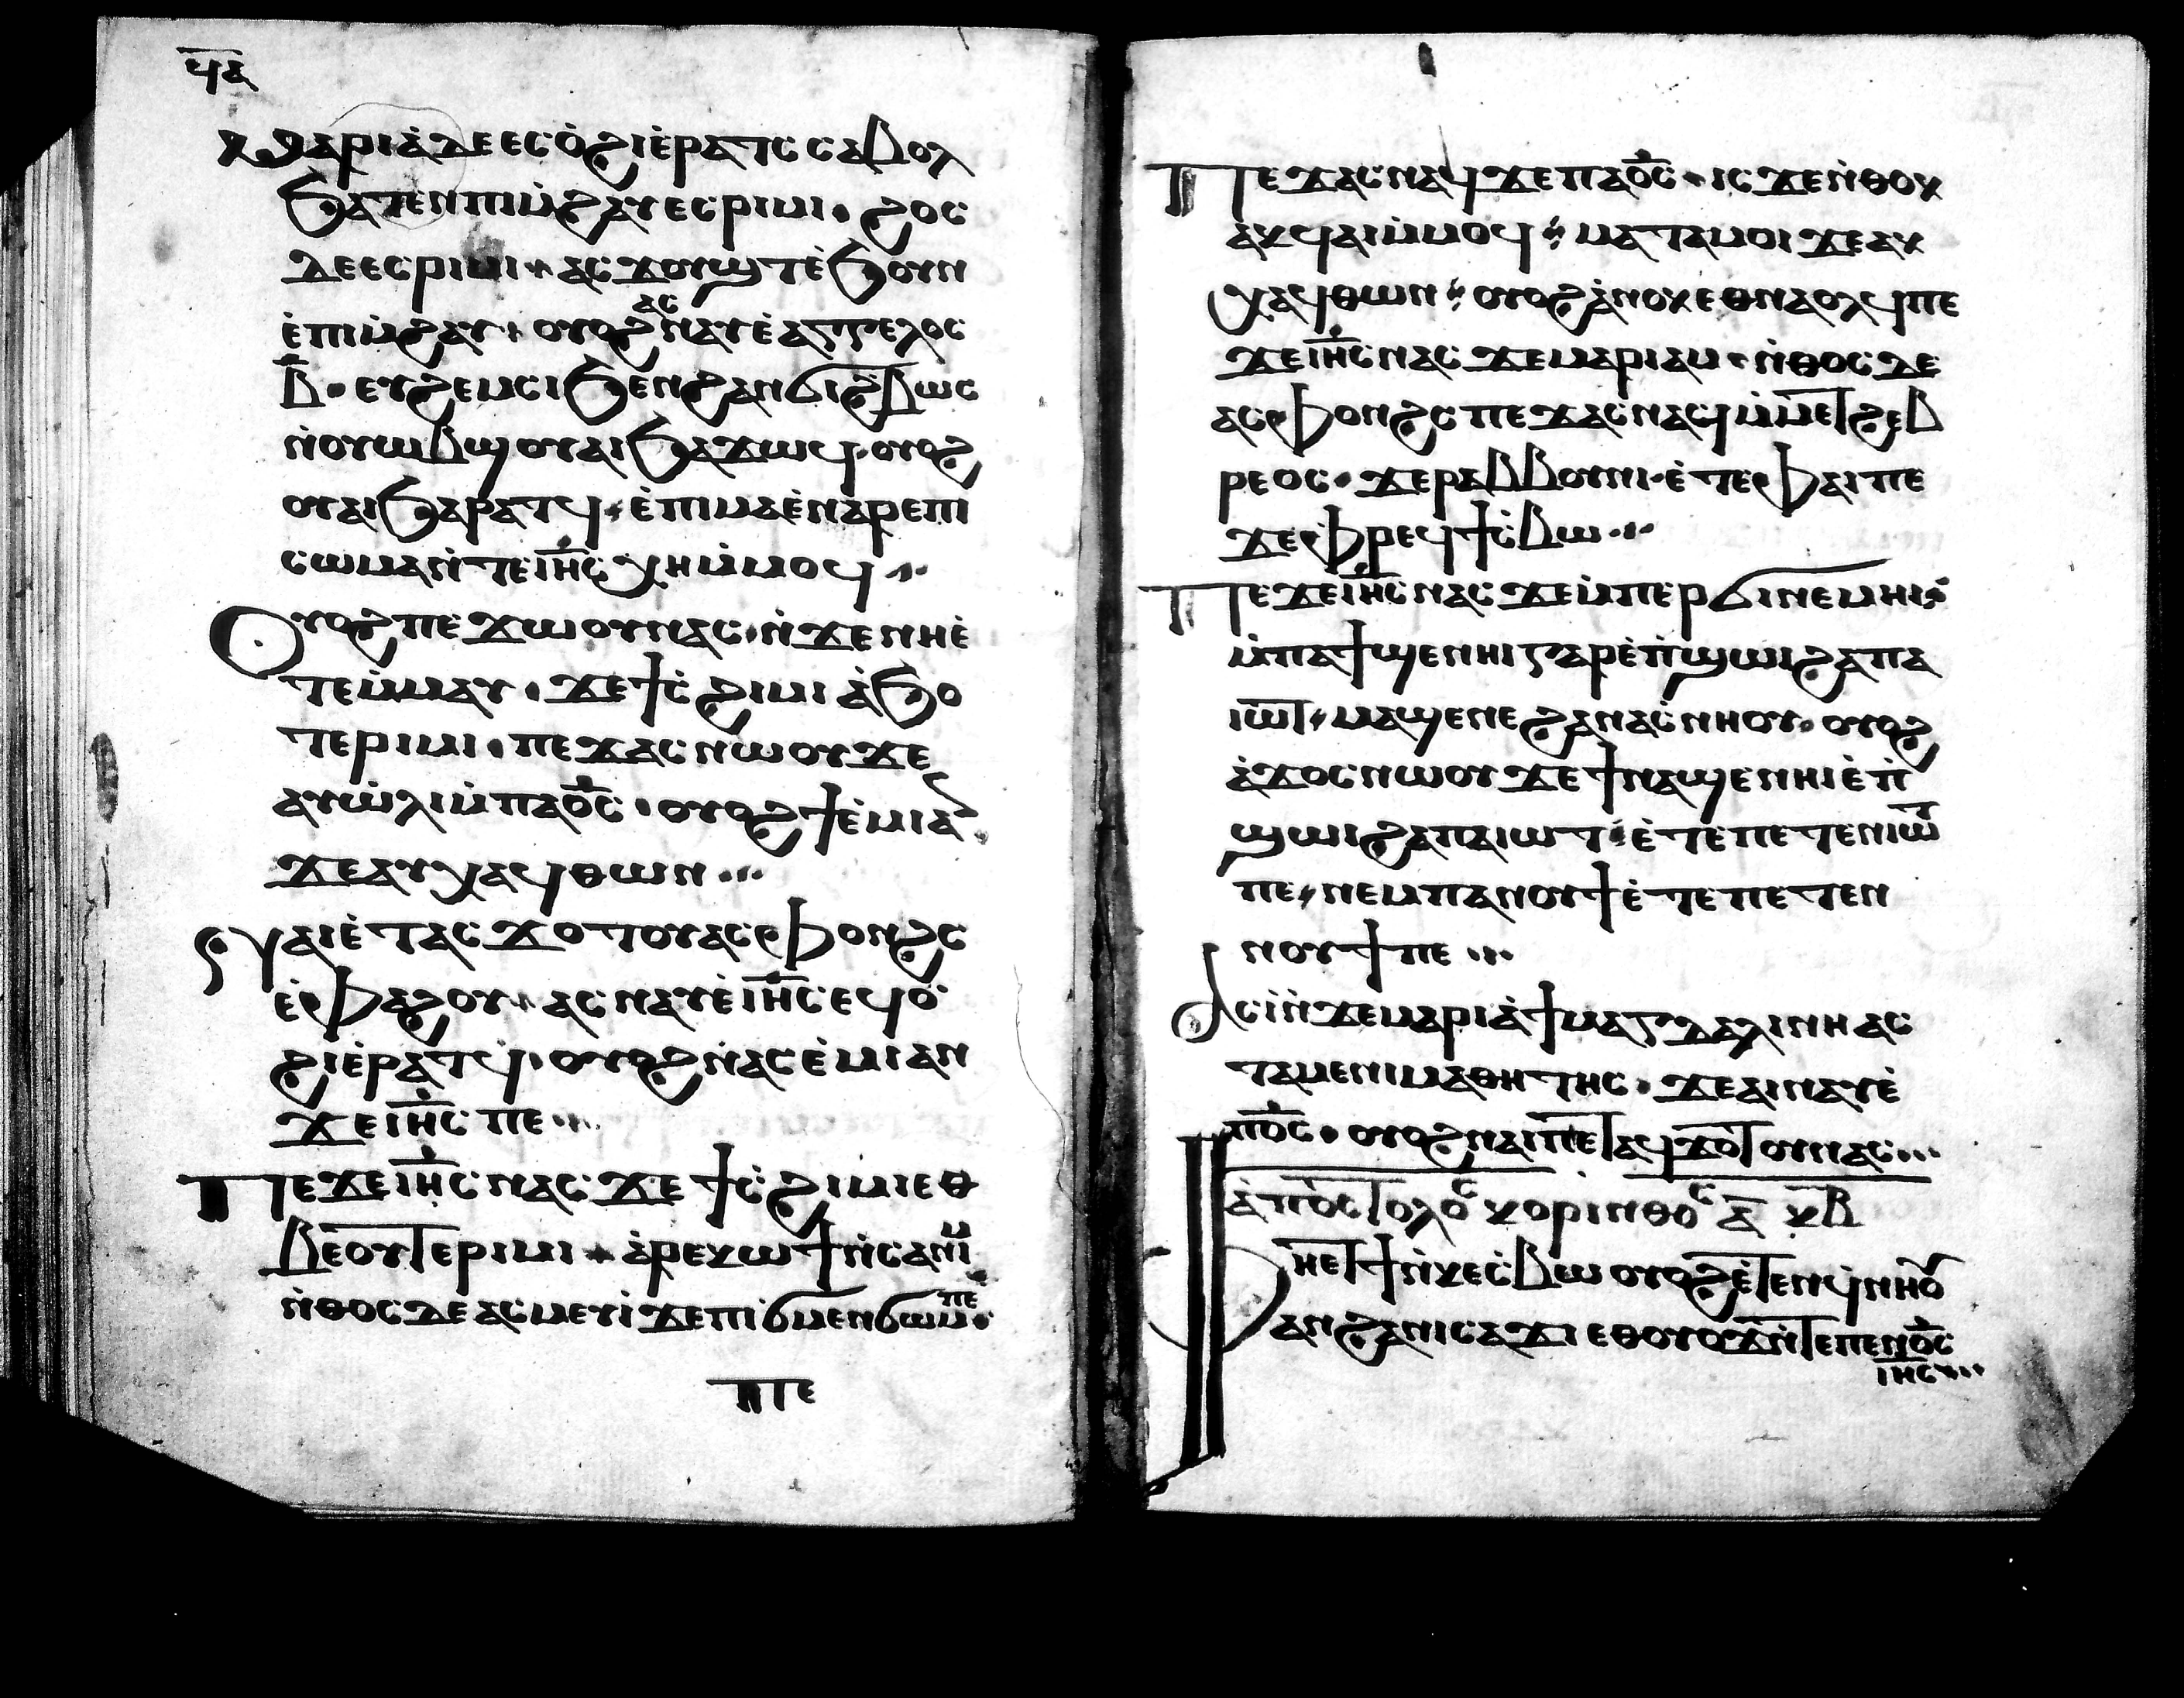 ϥⲁ
ⲙⲁⲣⲓⲁ̀ⲇⲉⲉⲥⲟ̀ϩⲓⲉ̀ⲣⲁⲧⲥ ⲥⲁⲃⲟⲗ
ϧⲁⲧⲉⲛⲡⲓⲙ̀ϩⲁⲩⲉⲥⲣⲓⲙⲓ · ϩⲟⲥ
ⲇⲉⲉⲥⲣⲓⲙⲓ · ⲁⲥϫⲟⲩϣⲧⲉ̀ϧⲟⲩⲛ
ⲉ̀ⲡⲓⲙ̀ϩⲁⲩ · ⲟⲩⲟϩⲁⲥⲛⲁⲩⲉ̀ⲁⲅⲅⲉⲗⲟⲥ
ⲃ̅ · ⲉⲩϩⲉⲙⲥⲓϧⲉⲛϩⲁⲛϭⲓϩ̀ⲃⲱⲥ
ⲛ̀ⲟⲩⲱⲃϣⲟⲩⲁⲓϧⲁϫⲱϥ · ⲟⲩⲟϩ
ⲟⲩⲁⲓϧⲁⲣⲁⲧϥ · ⲉ̀ⲡⲓⲙⲁⲉ̀ⲛⲁⲣⲉⲡⲓ
ⲥⲱⲙⲁⲛ̀ⲧⲉⲓⲏ̅ⲥ̅ⲭⲏⲙ̀ⲙⲟϥ ···
Ⲟⲩⲟϩⲡⲉϫⲱⲟⲩⲛⲁⲥ · ⲛ̀ϫⲉⲛⲏⲉ̀
ⲧⲉⲙ̀ⲙⲁⲩ · ϫⲉϯⲥ̀ϩⲓⲙⲓ ⲁ̀ϧⲟ
ⲧⲉⲣⲓⲙⲓ · ⲡⲉϫⲁⲥⲛⲱⲟⲩϫⲉ
ⲁⲩⲱ̀ⲗⲓⲙ̀ⲡⲁⲟ̅ⲥ̅ · ⲟⲩⲟϩϯⲉ̀ⲙⲓⲁⲛ
ϫⲉⲁⲩⲭⲁϥⲑⲱⲛ ···
Ⲛⲁⲓⲉ̀ⲧⲁⲥϫⲟⲧⲟⲩⲁⲥⲫⲟⲛϩⲥ
ⲉ̀ⲫⲁϩⲟⲩ · ⲁⲥⲛⲁⲩⲉ̀ⲓⲏ̅ⲥ̅ⲉϥⲟ̀
ϩⲓⲉ̀ⲣⲁⲧϥ · ⲟⲩⲟϩⲛ̀ⲁⲥⲉ̀ⲙⲓⲁⲛ
ϫⲉⲓⲏ̅ⲥ̅ ⲡⲉ ···
Ⲡⲉϫⲉⲓⲏ̅ⲥ̅ⲛⲁⲥ ϫⲉ ϯⲥ̀ϩⲓⲙⲓⲉⲑ
ⲃⲉⲟⲩⲧⲉⲣⲓⲙⲓ · ⲁ̀ⲣⲉⲕⲱϯⲛ̀ⲥⲁⲛⲓⲙ
ⲛ̀ⲑⲟⲥⲇⲉⲁⲥⲙⲉⲩⲓ̀ϫⲉⲡⲓϭⲙⲉⲛϭⲱⲙⲡⲉ ·
ⲡⲉ
Ⲡⲉϫⲁⲥⲛⲁϥϫⲉⲡⲁⲟ̅ⲥ̅ · ⲓⲥϫⲉⲛ̀ⲑⲟⲕ
ⲁⲕϥⲁⲓⲙ̀ⲙⲟϥ · ⲙⲁⲧⲁⲙⲟⲓ ϫⲉⲁⲕ
ⲭⲁϥⲑⲱⲛ · ⲟⲩⲟϩⲁ̀ⲛⲟⲕⲉⲑⲛⲁⲟⲗϥⲡⲉ
ϫⲉⲓⲏ̅ⲥ̅ⲛⲁⲥ ϫⲉⲙⲁⲣⲓⲁⲙ · ⲛ̀ⲑⲟⲥⲇⲉ
ⲁⲥⲫⲟⲛϩⲥ ⲡⲉϫⲁⲥⲛⲁϥⲙ̀ⲙⲉⲧϩⲉⲃ
ⲣⲉⲟⲥ · ϫⲉⲣⲁⲃⲃⲟⲩⲛⲓ · ⲉ̀ⲧⲉⲫⲁⲓⲡⲉ
ϫⲉⲫⲣⲉϥϯⲥ̀ⲃⲱ ···
Ⲡⲉϫⲉⲓⲏ̅ⲥ̅ⲛⲁⲥ ϫⲉⲙ̀ⲡⲉⲣϭⲓⲛⲉⲙⲏⲓ ·
ⲙ̀ⲡⲁϯϣⲉⲛⲏⲓⲅⲁⲣⲉ̀ⲡ̀ϣⲱⲓϩⲁⲡⲁ
ⲓⲱⲧ · ⲙⲁϣⲉⲛⲉϩⲁⲛⲁⲥ̀ⲛⲏⲟⲩ · ⲟⲩⲟϩ
ⲁ̀ϫⲟⲥⲛⲱⲟⲩ ϫⲉϯⲛⲁϣⲉⲛⲏⲓⲉ̀ⲡ̀
ϣⲱⲓϩⲁⲡⲁⲓⲱⲧ · ⲉ̀ⲧⲉⲡⲉⲧⲉⲛⲓⲱⲧ
ⲡⲉ · ⲛⲉⲙⲡⲁⲛⲟⲩϯⲉ̀ⲧⲉⲡⲉⲧⲉⲛ
ⲛⲟⲩϯⲡⲉ ···
Ⲁⲥⲓ̀ⲛ̀ϫⲉⲙⲁⲣⲓⲁ̀ϯⲙⲁⲅⲇⲁⲗⲓⲛⲏ ⲁⲥ
ⲧⲁⲙⲉⲛⲓⲙⲁⲑⲏⲧⲏⲥ · ϫⲉⲁⲓⲛⲁⲩⲉ̀
ⲡⲟ̅ⲥ̅ · ⲟⲩⲟϩⲛⲁⲓⲡⲉⲧⲁϥϫⲟⲧⲟⲩⲛⲁⲥ ···
ⲁ̀ⲡⲟⲥⲧⲟⲗⲟⲥ ⲕⲟⲣⲓⲛⲑⲟⲥ ⲁ̅ ⲕ̅ⲃ̅
Ⲫⲏⲉⲧϯⲛ̀ⲕⲉⲥ̀ⲃⲱ ⲟⲩⲟϩⲉ̀ⲧⲉⲛϥ̀ⲛⲏⲟⲩ
ⲁⲛϩⲁⲛⲓⲥⲁϫⲓ ⲉⲑⲟⲩⲟϫⲛ̀ⲧⲉⲡⲉⲛⲟ̅ⲥ̅
ⲓⲏ̅ⲥ̅ ···